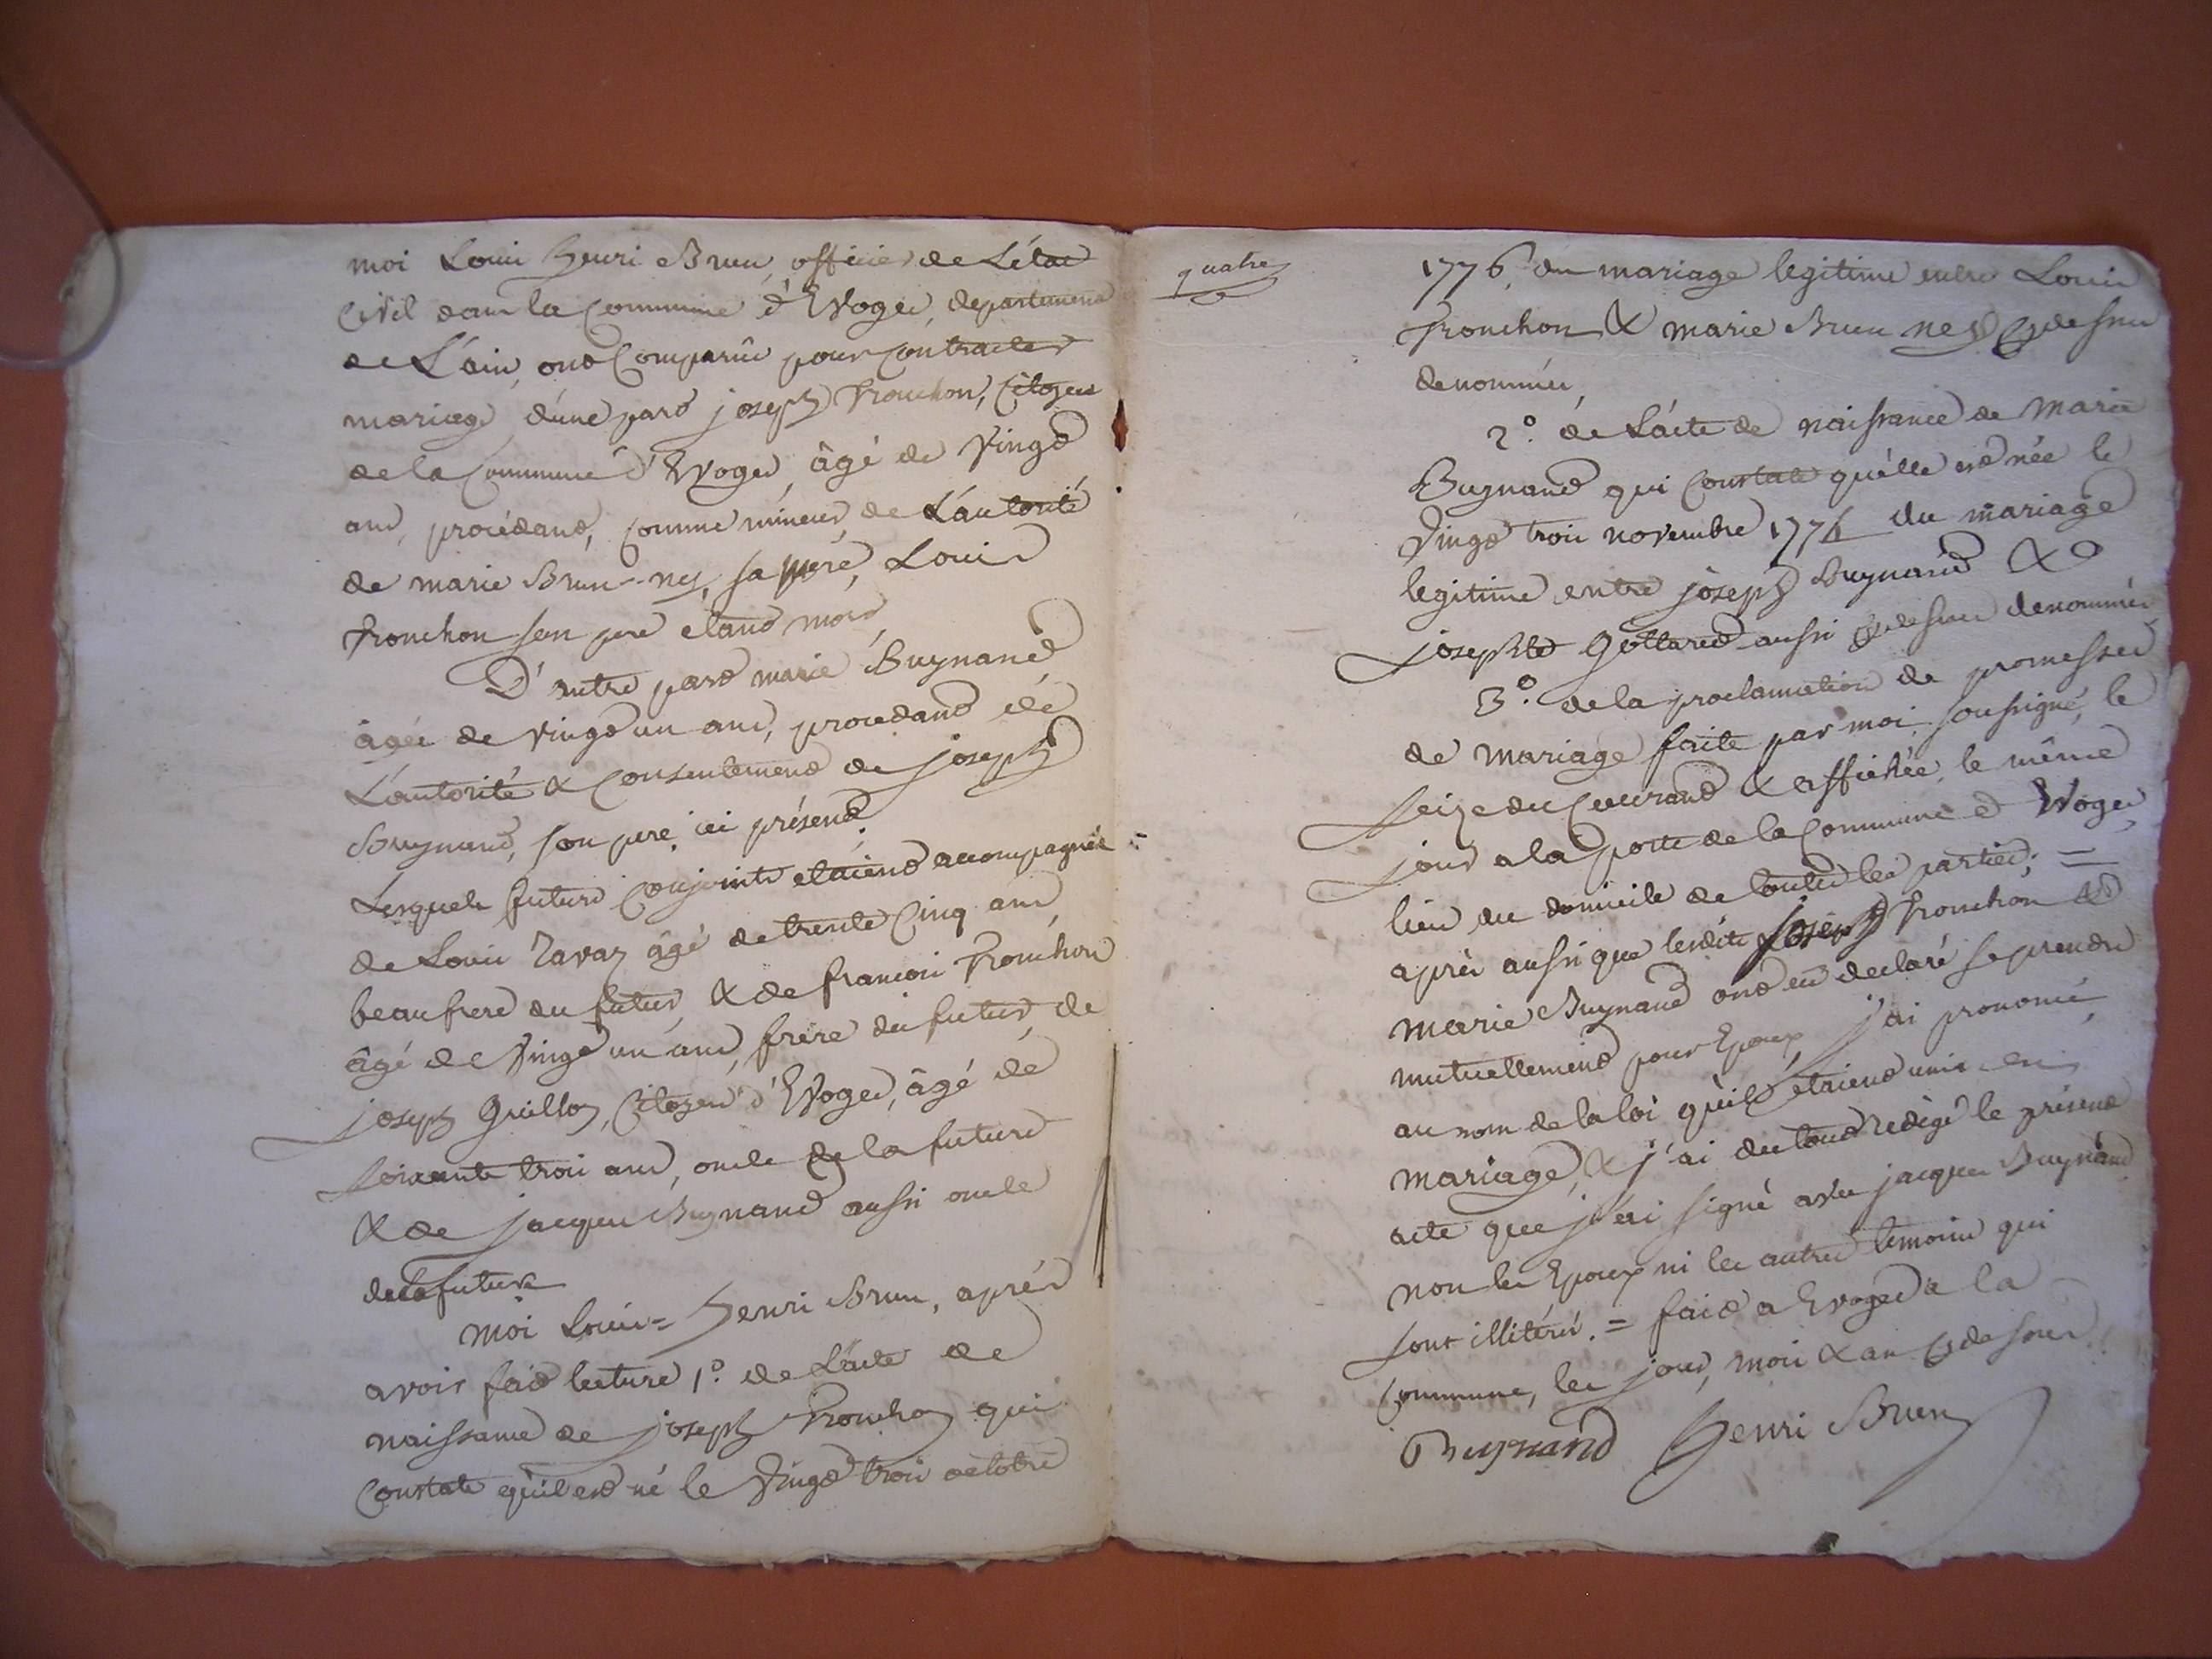 moi Louis Henri Brun, officier de L'état
Civil dans la Commune d'Evoges, departement
de L'ain, ont Comparûs pour Contracter
mariage, d'une part joseph Tronchon, Citoyen
de la Commune d'Evoges, âgé de Vingt
ans, procédant, Comme mineur, de L'autorité
de marie Brun-ney, sa mere, Louis
Tronchon son pere étant mort,
D'autre part marie Buynand
âgée de vingt un ans, procedant de
L'autorité & Consentement de joseph
Buynand, son pere, ici présent;
Lesquels futurs Conjoints etaient accompagnés =
de Louis Ravaz âgé de trente Cinq ans,
beaufrere du futur, & de francois Tronchon
âgé de Vingt un ans, frere du futur, de
joseph Guillon, Citoyen d'Evoges, âgé de
soixante trois ans, oncle de la future
& de jacques Buynand aussi oncle
de la future
moi Louis= Henri Brun, après
avoir fait lecture 1°. de L'acte de
naissance de joseph Tronchon qui
Constate qu'il est né le Vingt trois octobre
quatre
1776, du mariage legitime entre Louis
Tronchon & marie Brun ney Cydessus
denommés,
2°. de L'acte de naissance de Marie
Buynand qui Constate qu'elle est née le
Vingt trois novembre 1774 du mariage
legitime entre joseph Buynand &
josephte Gottared aussi Cydessus denommés
3°. de la proclamation de promesses
de mariage faite par moi soussigné, le
seize du Courant & affichée, le même
jour a la porte de la Commune d'Evoges,
lieu du domicile de toutes les parties; =
après aussi que lesdits joseph Tronchon &
marie Buynand ont eû declaré se prendre
mutuellement pour Epoux, j'ai prononcé,
au nom de la loi qu'ils étaient unis en
mariage, & j'ai du tout redigé le présent
acte que j'ai signé avec jacques Buynand
non les Epoux ni les autres temoins qui
sont illitérés. = fait a Evoges a la
Commune, les jour, mois & an Cydessus.
Buynand Henri Brun